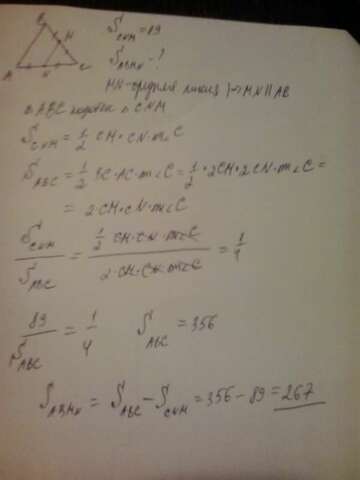 B
M
A N C
S CNM = 89
S ABMN - ?
MN - средняя линия }⇒ MN || AB
△ABC подобен △CNM
S CNM = 1/2 CM · CN · sin∠C
S ABC = 1/2 BC · AC · sin∠C = 1/2 · 2CM · 2CN · sin∠C =
= 2 · CM · CN · sin∠C
S CNM / S ABC = 1/2 CM · CN · sin∠C / 2 · CM · CN · sin∠C = 1/4
89 / S ABC = 1/4 S ABC = 356
S ABMN = S ABC - S CNM = 356 - 89 = 267